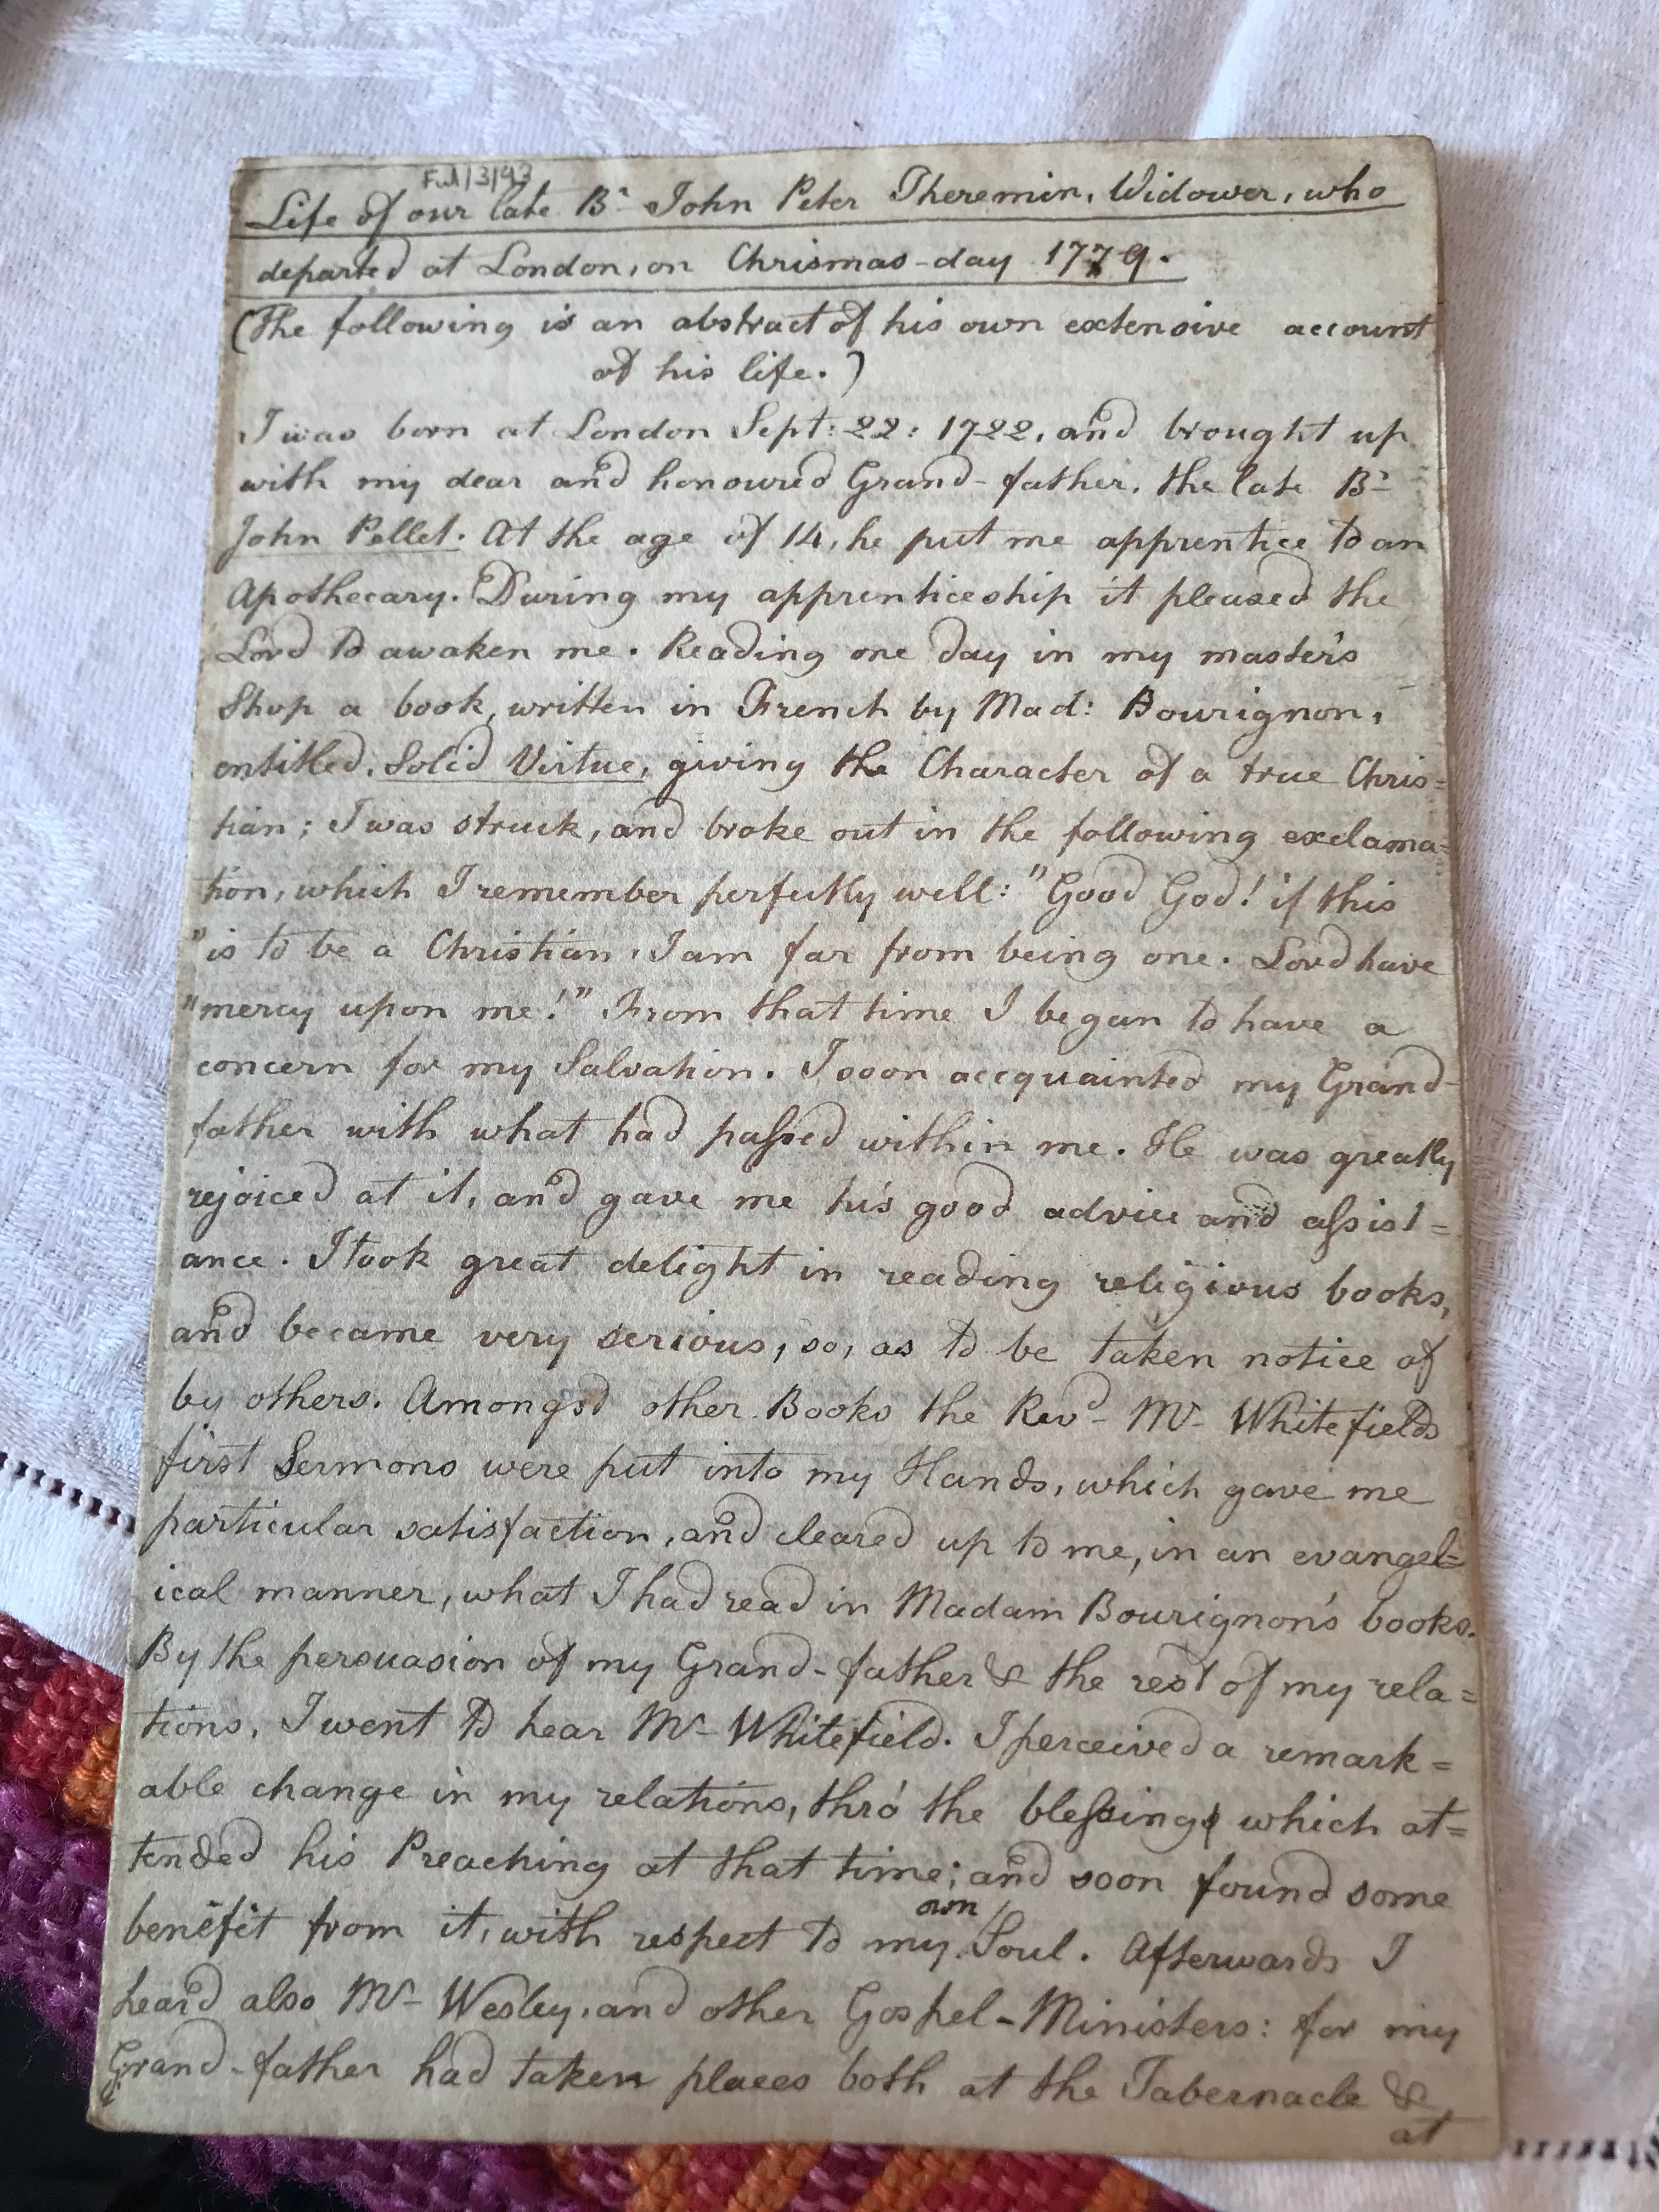 Ful/3/93
Life of our late Br. John Peter Theremin, Widower, who
departed at London, on Chrismas-day 1779.
(The following is an abstract of his own extensive account
of his life.)
I was born at London Sept: 22: 1722, and brought up
with my dear and honoured Grand-father, the late Br.
John Pellet. At the age of 14, he put me apprentice to an
Apothecary. During my apprenticeship it pleased the
Lord to awaken me. Reading one day in my master's
Shop a book, written in French by Mad: Bourignon,
entitled, Solid Virtue, giving the Character of a true Chris=
tian; I was struck, and broke out in the following exclama=
tion, which I remember perfectly well: "Good God! if this
"is to be a Christian, I am far from being one. Lord have
"mercy upon me!" From that time I began to have a
concern for my Salvation. I soon accquainted my Grand-
father with what had passed within me. He was greatly
rejoiced at it, and gave me his good advice and assist=
ance. I took great delight in reading religious books,
and became very serious, so, as to be taken notice of
by others. Amongst other Books the Revd. Mr. Whitefields
first Sermons were put into my Hands, which gave me
particular satisfaction, and cleared up to me, in an evangel=
ical manner, what I had read in Madam Bourignon's books.
By the persuasion of my Grand-father & the rest of my rela=
tions, I went to hear Mr. Whitefield. I perceived a remark=
able change in my relations, thro' the blessing which at=
tended his Preaching at that time; and soon found some
benefit from it, with respect to my own Soul. Afterwards I
heard also Mr. Wesley, and other Gospel-Ministers: for my
Grand-father had taken places both at the Tabernacle &
at